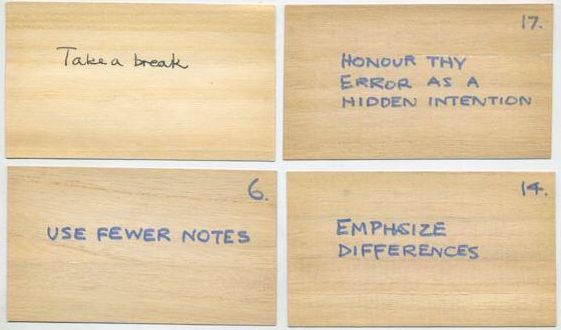 Take a break
17.
HONOUR THY
ERROR AS A
HIDDEN INTENTION
6.
USE FEWER NOTES
14.
EMPHASIZE
DIFFERENCES